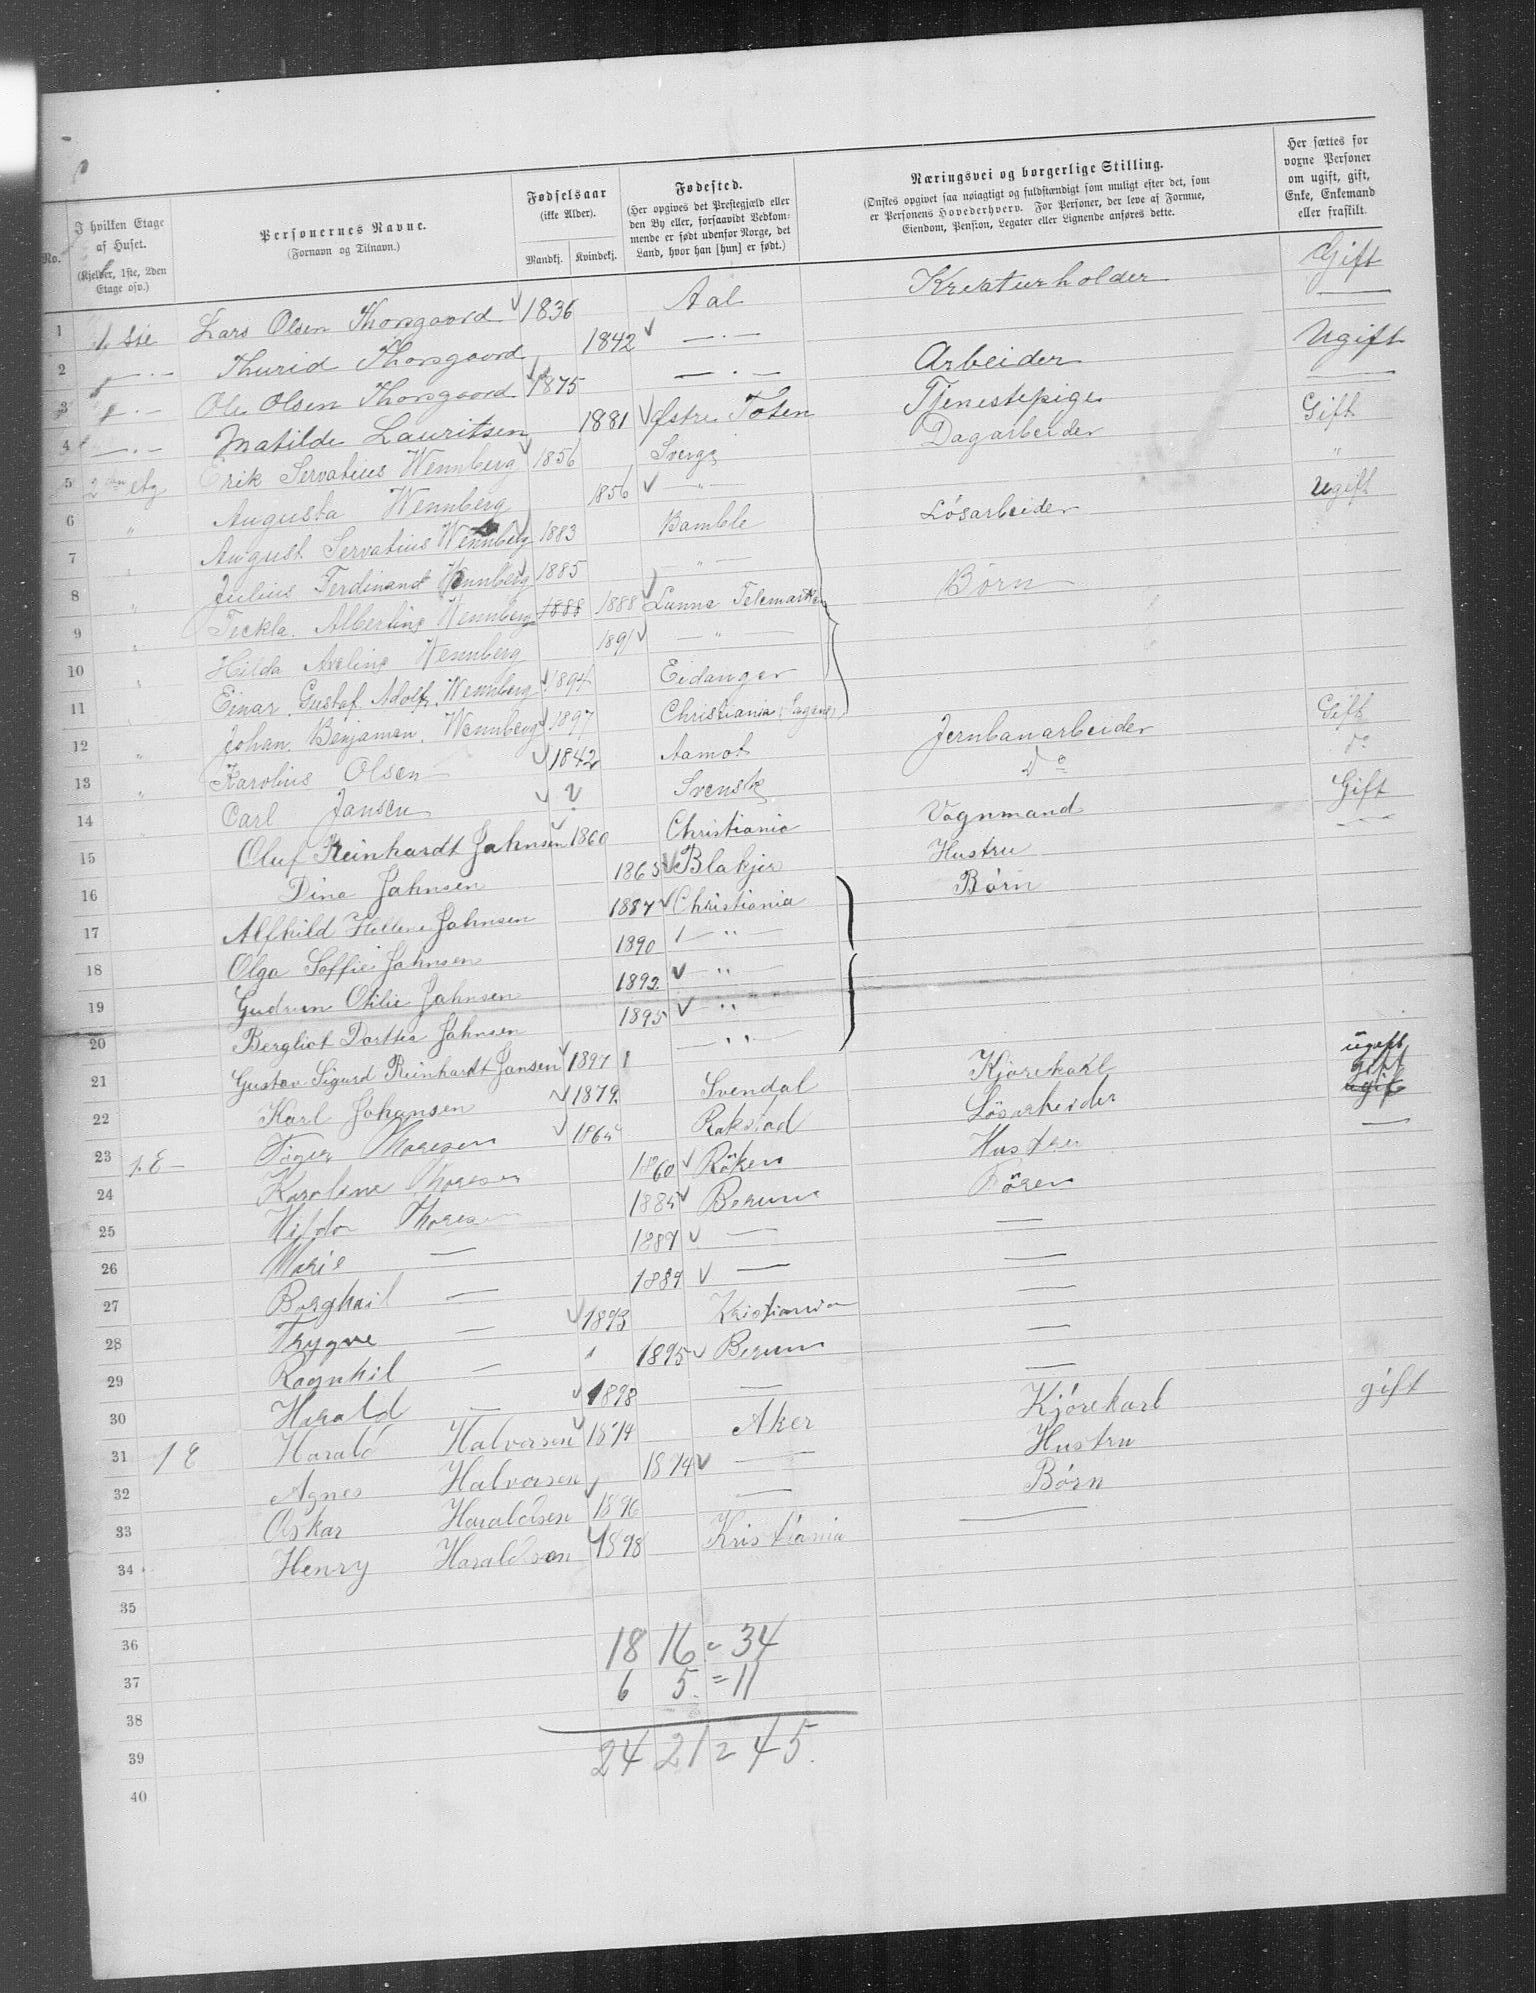 No. | I hvilken Etage af Huset. (Kjelder, 1ste, 2den Etage osv.) | Personernes Navne. (Fornavn og Tilnavn.) | Fødselsaar (ikke Alder). Mandkj. Kvindekj. | Fødested. (Her opgives det Prestegjæld eller den By eller, forsaavidt Vedkommende er født udenfor Norge, det Land, hvor han [hun] er født.) | Næringsvei og borgerlige Stilling. (Ønskes opgivet saa nøiagtigt og fuldstændigt som muligt efter det, som er Personens Hovederhverv. For Personer, der leve af Formue, Eiendom, Pension, Legater eller Lignende anføres dette. | Her sættes for voxne Personer om ugift, gift, Enke, Enkemand eller fraskilt.
1 1 ste Lars Olsen Thorsgaard 1836 Aal Kreaturholder Gift
2 — " — Thurid Thorsgaard 1842 — " — —
3 — " — Ole Olsen Thorsgaard 1875 — " — Arbeider Ugift
4 — " — Matilde Lauritsen 1881 Østre Toten Tjenestepige —
5 2den etg Erik Servatius Wennberg 1856 Sverge Dagarbeider Gift
6 " Augusta Wennberg 1856 — " — "
7 " August Servatius Wennberg 1883 Bamble Lósarbeider Ugift
8 " Julius Ferdinand Wennberg 1885 — " —
9 " Teckla Albertine Wennberg 1888 1888 Lunne Telemarken Børn
10 " Hilda Axeline Wennberg 1891 — " —
11 " Einar Gustaf Adolf Wennberg 1894 Eidanger
12 " Johan Benjamen Wennberg 1897 Christiania (Sagene)
13 " Karolius Olsen 1842 Aamot Jernbanarbeider Gift
14 Carl Jansen ? Svensk Do do
15 Oluf Reinhardt Jahnsen 1860 Christiania Vognmand Gift
16 Dina Jahnsen 1865 Blakjer Hustru — " —
17 Alfhild Hellene Jahnsen 1887 Christiania Børn
18 Olga Soffie Jahnsen 1890 — " —
19 Gudrun Otilie Jahnsen 1892 — " —
20 Bergliot Dorthea Jahnsen 1895 — " —
21 Gustav Sigurd Reinhardt Jansen 1897 — " —
22 Karl Johansen 1879 Svendal Kjørekarl ugift
23 1. E — Thoresen 1864 Rakstad Løsarbeider gift ugif
24 Karoline Thoresen 1860 Röken Hustru —
25 Hilda Thoresen 1884 Berum Börn
26 Marie — 1887 — —
27 Borghail — 1889 — —
28 Trygve — 1893 Kristiania —
29 Ragnhil — 1895 Berum —
30 Harald — 1898 — —
31 1 E Harald Halvorsen 1874 Aker Kjórekarl gift
32 Agnes Halvorsen 1874 — Hustru
33 Oskar Haraldsen 1896 — Børn
34 Henry Haraldsen 1898 Kristiania —
35
36 18 16 = 34
37 6 5. = 11
38
39 24 21 = 45.
40